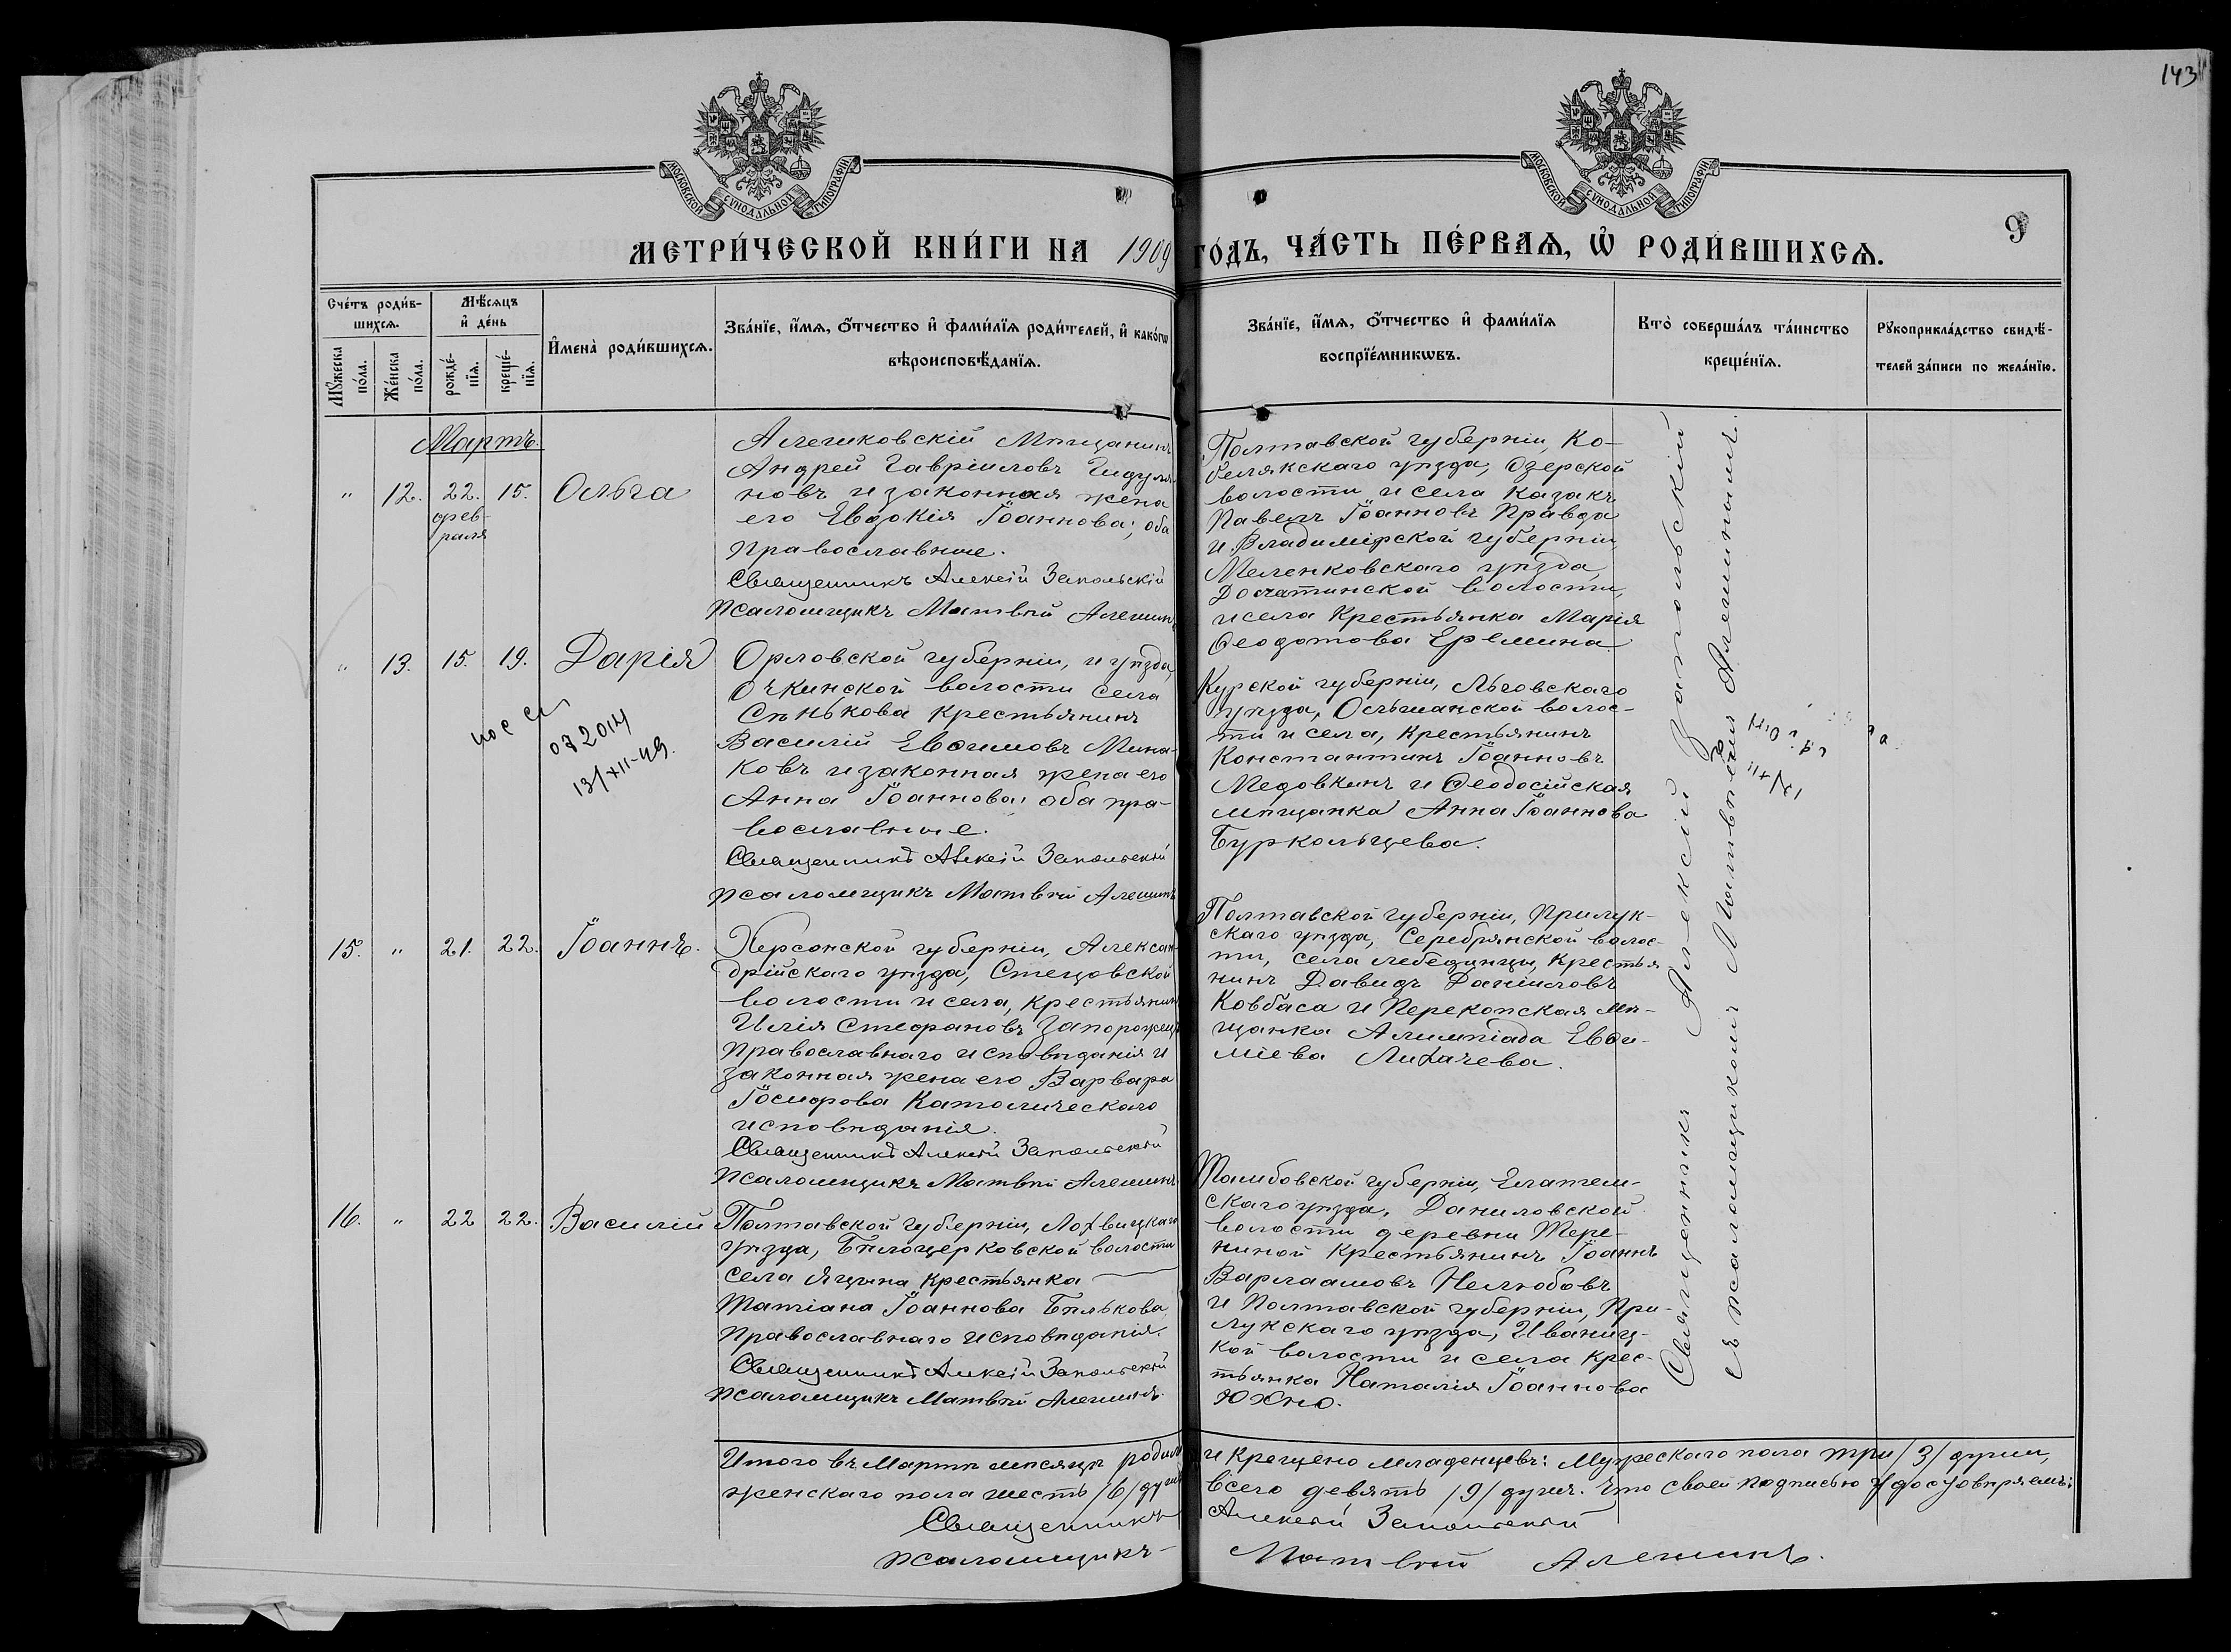 143
МОСКОВСКОЙ СУНОДАЛЬНОЙ ТИПОГРАФІИ
МОСКОВСКОЙ СУНОДАЛЬНОЙ ТИПОГРАФІИ
9
МЕТРИ́ЧЕСКОЙ КНИ́ГИ НА 1909 ГО́ДЪ, ЧА́СТЬ ПЕ́РВАѦ, Ѡ҆ РОДИ́ВШИХСѦ.
Сче́тъ роди́в-
шихсѧ.
Мꙋжеска по́ла.
Же́нска по́ла.
Мѣ́сѧцъ
и҆ де́нь
рожде́-
нїѧ.
креще́-
нїѧ.
И҆мена̀ роди́вшихсѧ.
Зва́нїе, и҆́мѧ, ѻ҆́тчество и҆ фами́лїѧ роди́телей, и҆ како́гѡ
вѣроисповѣ́данїѧ.
Зва́нїе, и҆́мѧ, ѻ҆́тчество и҆ фами́лїѧ
воспрїе́мникѡвъ.
Кто̀ соверша́лъ та́инство
креще́нїѧ.
Рꙋкоприкла́дство свидѣ́-
телей за́писи по жела́нїю.
Мартъ.
" 12. 22. 15. Ольга
фев-
раля
Алешковскій Мѣщанинъ
Андрей Гавріиловъ
новъ и законная жена
его Евдокія Іоаннова; оба
православные.
Священникъ Алексій Запольскій
Псаломщикъ Матвѣй Алешинъ
Полтавской губерніи, Ко-
белякскаго уѣзда, Озерской
волости и села Казакъ
Павелъ Іоанновъ Правда
и Владимірской губерніи,
Меленковскаго уѣзда,
Досчатинской волости,
и села Крестьянка Марія
Ѳеодотова Еремина.
" 13. 15. 19. Дарія
072014
13/XII-49.
Орловской губерніи, и уѣзда,
Очкинской волости села
Сѣнькова крестьянинъ
Василій Евѳимовъ Мина-
ковъ и законная жена его
Анна Іоаннова; оба пра-
вославные.
Священникъ Алексій Запольскій
Псаломщикъ Матвѣй Алешинъ
Курской губерніи, Льговскаго
уѣзда, Ольшанской волос-
ти и села, Крестьянинъ
Константинъ Іоанновъ
Медовкинъ и Ѳеодосійская
мѣщанка Анна Іоаннова
Буркольцева.
15. " 21. 22. Іоаннъ.
Херсонской губерніи, Алексан-
дрійскаго уѣзда, Стецовской
волости и села, Крестьянинъ
Илія Стефановъ Запорожецъ
Православнаго исповѣданія и
законная жена его Варвара
Іосифова Католическаго
исповѣданія.
Священникъ Алексій Запольскій
Псаломщикъ Матвѣй Алешинъ
Полтавской губерніи, Прилук-
скаго уѣзда, Серебрянской волос-
ти, села Лебединцы, Крестья
нинъ Давидъ Даніиловъ
Ковбаса и Перекопская мѣ-
щанка Алимпіада Евѳи-
міева Лихачева.
16. " 22 22. Василій
Полтавской губерніи, Лохвицкаго
уѣзда, Бѣлоцерковской волости
села Яцына крестьянка
Татіана Іоаннова Бѣлькова,
Православнаго исповѣданія.
Священникъ Алексій Запольскій
Псаломщикъ Матвѣй Алешинъ.
Тамбовской губерніи, Елатем-
скаго уѣзда, Даниловской
волости деревни Тере-
ниной крестьянинъ Іоаннъ
Варлаамовъ Нелюбовъ
и Полтавской губерніи, При-
лукскаго уѣзда, Иваниц-
кой волости и села крес-
тьянка Наталія Іоаннова
Юхно.
Священникъ Алексій Запольскій
съ псаломщикомъ Матвѣемъ Алешинымъ.
Итого въ Мартѣ мѣсяцѣ родил и крещено младенцевъ: Мужескаго пола три /3/ души,
женскаго пола шесть /6/ душ всего девять /9/ душъ. Что своей подписью удостовѣряемъ:
Священникъ Алексій Запольскій
Псаломщикъ Матвѣй Алешинъ.